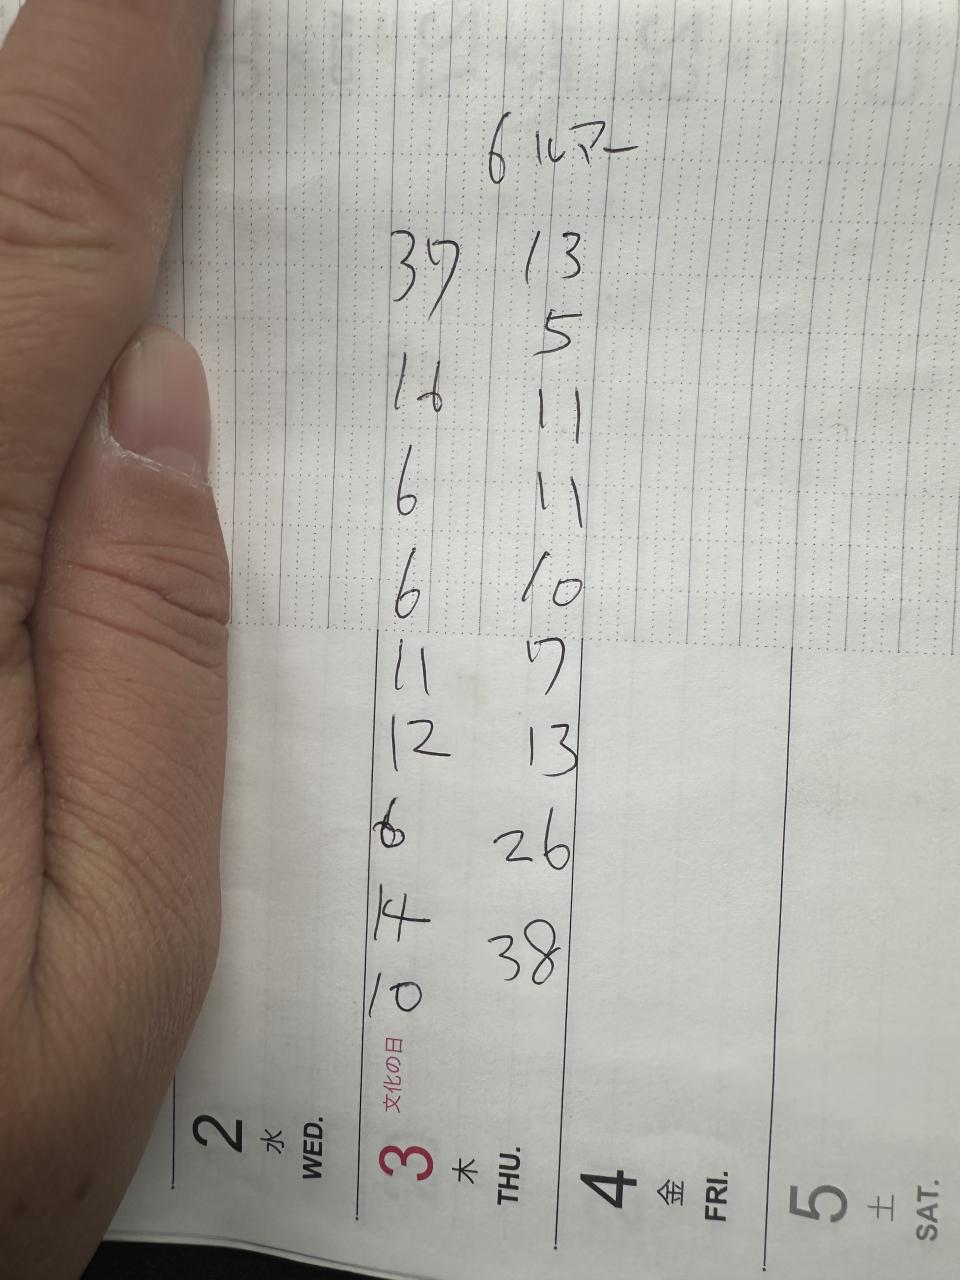 6 ルアー
37 13
16 5
6 11
6 11
11 10
12 7
6 13
14 26
10 38
2 水 WED.
3 木 THU. 文化の日
4 金 FRI.
5 土 SAT.